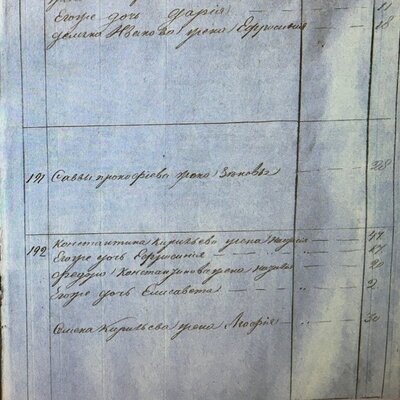 Егоре дочь Дария — — — 11
Ивана жена Ефросиния — — 18
191 Саввы Прокофиева жена Зиновья — — 28
192 Константина Кирильева жена Мария — 47
Егоре дочь Ефросиния — — „ — 17
Федора Константинова жена — 20
Егоре дочь Елисавета — — „ — 2
Семена Кирильева жена Агафия — „ — 30